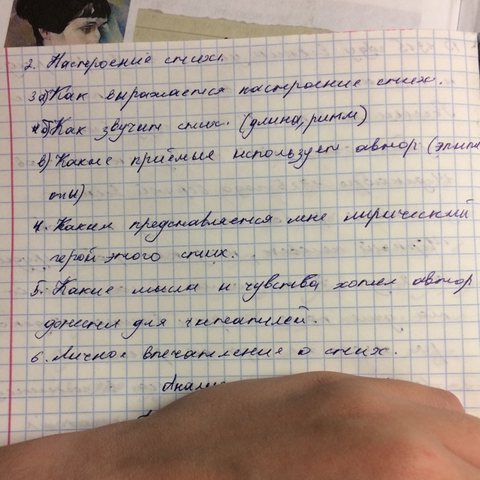 2. Настроение стих.
3а) Как выражается настроение стих.
б) Как звучит стих. (длина, ритм)
в) Какие приёмые использует автор (эпите
ты)
4. Каким представляется мне лирический
герой этого стих.
5. Какие мысли и чувства хотел автор
донести для читателей.
6. Личное впечатление о стих.